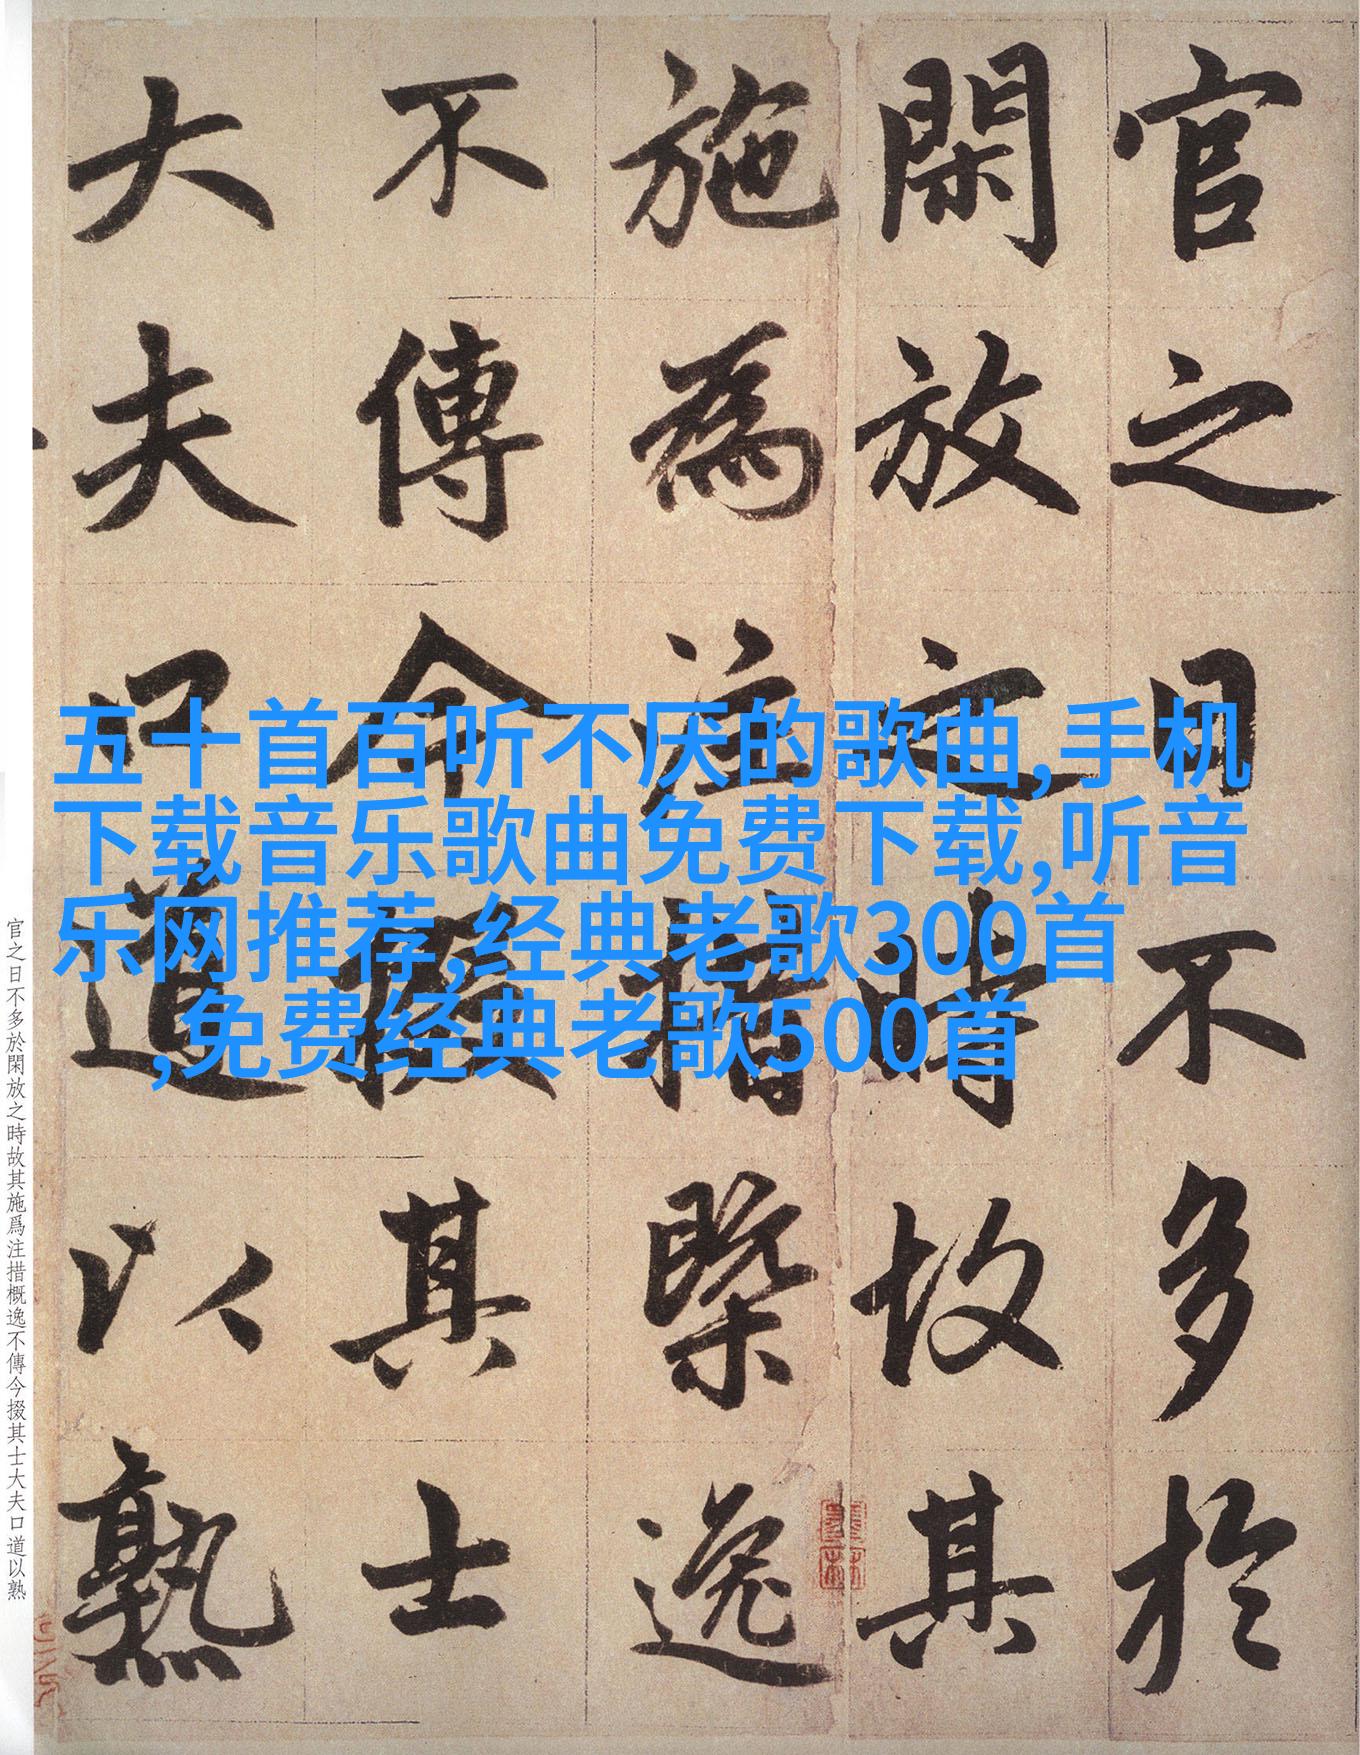 官之日不多於
閑放之時故其
施為注措槩逸
不傳今掇其士
大夫口道以熟
五十首百听不厌的歌曲,手机
下载音乐歌曲免费下载,听音
乐网推荐,经典老歌300首
,免费经典老歌500首
官之日不多於閑放之時故其施爲注措概逸不傳今掇其士大夫口道以熟